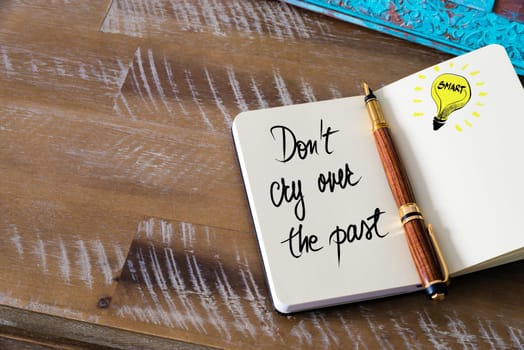 Don't
cry over
the past
SMART